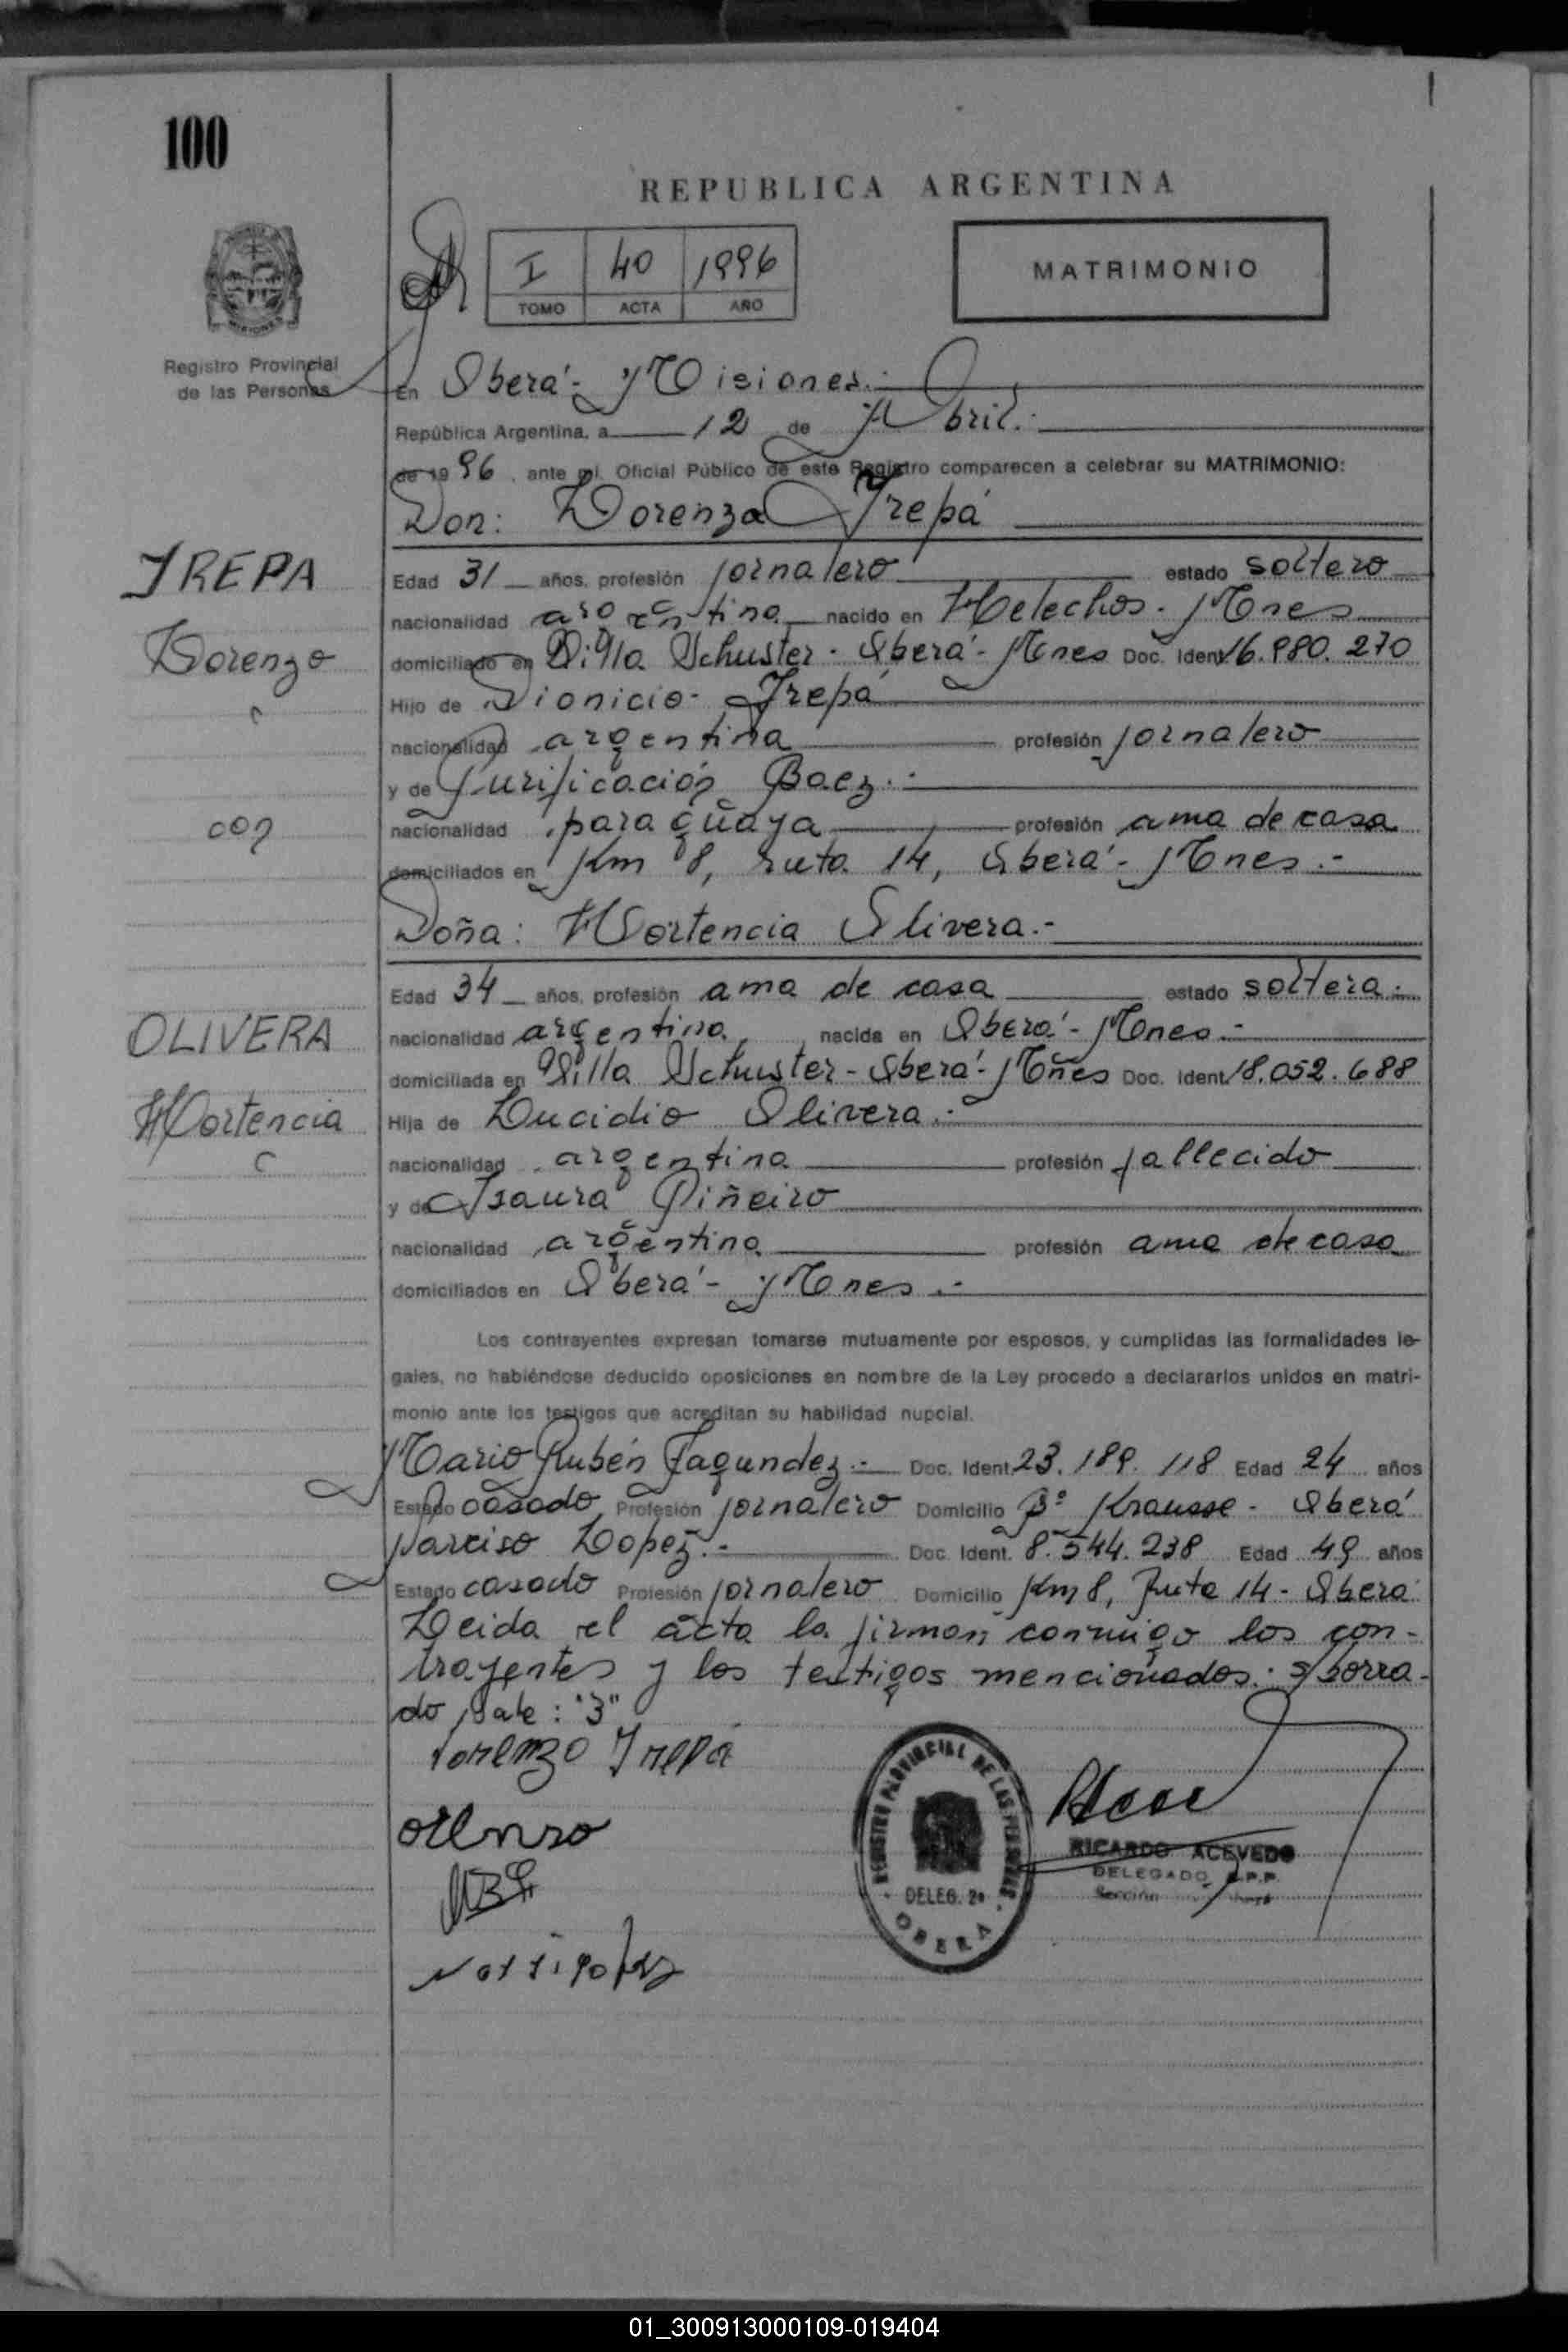 100
REPUBLICA ARGENTINA
I 40 1996
TOMO ACTA AÑO
MATRIMONIO
MISIONES
Registro Provincial
de las Personas
En Oberá- Misiones.-
República Argentina, a 12 de Abril.-
de 1996, ante mi, Oficial Público de este Registro comparecen a celebrar su MATRIMONIO:
Don: Lorenzo Irepá
IREPA
Lorenzo
Edad 31 años, profesión jornalero estado soltero
nacionalidad argentina nacido en Helechos- Mnes
domiciliado en Villa Schuster- Oberá- Mnes Doc. Ident. 16.980.270
Hijo de Dionicio- Irepá
nacionalidad argentina profesión jornalero
y de Purificación Baez.-
con
nacionalidad paraguaya profesión ama de casa
domiciliados en Km 8, ruta 14, Oberá- Mnes.-
Doña: Hortencia Olivera.-
Edad 34 años, profesión ama de casa estado soltera.-
OLIVERA
Hortencia
nacionalidad argentina nacida en Oberá- Mnes.-
domiciliada en Villa Schuster- Oberá- Mñes Doc. Ident. 18.052.688
Hija de Lucidio Olivera.-
nacionalidad argentina profesión fallecido
y de Isaura Piñeiro
nacionalidad argentina profesión ama de casa
domiciliados en Oberá- Mnes.-
Los contrayentes expresan tomarse mutuamente por esposos, y cumplidas las formalidades le-
gales, no habiéndose deducido oposiciones en nombre de la Ley procedo a declararlos unidos en matri-
monio ante los testigos que acreditan su habilidad nupcial.
Mario Rubén Fagundez.- Doc. Ident. 23.189.118 Edad 24 años
Estado casado Profesión jornalero Domicilio Bº Krausse- Oberá
Narciso Lopez.- Doc. Ident. 8.544.238 Edad 49 años
Estado casado Profesión jornalero Domicilio Km 8, Ruta 14- Oberá
Leida el acta la firman conmigo los con-
trayentes y los testigos mencionados.- s/borra-
do vale: "3"
Lorenzo Irepá
REGISTRO PROVINCIAL DE LAS PERSONAS
DELEG. 2ª
OBERA
RICARDO ACEVEDO
DELEGADO R.P.P.
Sección
01_300913000109-019404